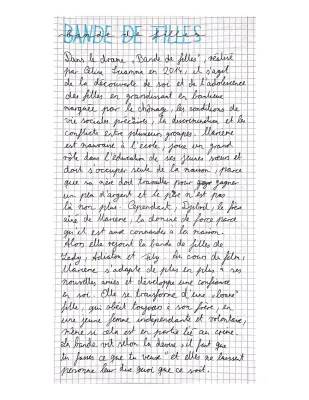 BANDE DE FILLES
Dans le drame „Bande de filles", réalisé
par Céline Sciamma en 2014, il s'agit
de la découverte de soi et de l'adolescence
des filles en grandissant en banlieue
marquée par le chômage, les conditions de
vie sociales précaires, la discrimination et les
conflicts entre plusieurs groupes. Marieme
est mauvaise à l'école, joue un grand
rôle dans l'éducation de ses jeunes sœurs et
doit s'occuper seule de la maison, parce
que sa mère doit travailler pour gagner
un peu d'argent et le père n'est pas
là non plus. Cependant, Djibril, le frère
aîné de Marieme, la domine de force parce
qu'il est aux commandes à la maison.
Alors elle rejoint la bande de filles de
Lady, Adiatou et Fily. Au cours du film,
Marieme s'adapte de plus en plus à ses
nouvelles amies et développe une confiance
en soi. Elle se transforme d'une „bonne"
fille, qui obéit toujours à son frère, en
une jeune femme indépendante et volontaire,
même si cela est en partie lié au crime.
La bande vit selon la devise „il faut que
tu fasses ce que tu veux" et elles ne laissent
personne leur dire quoi que ce soit.